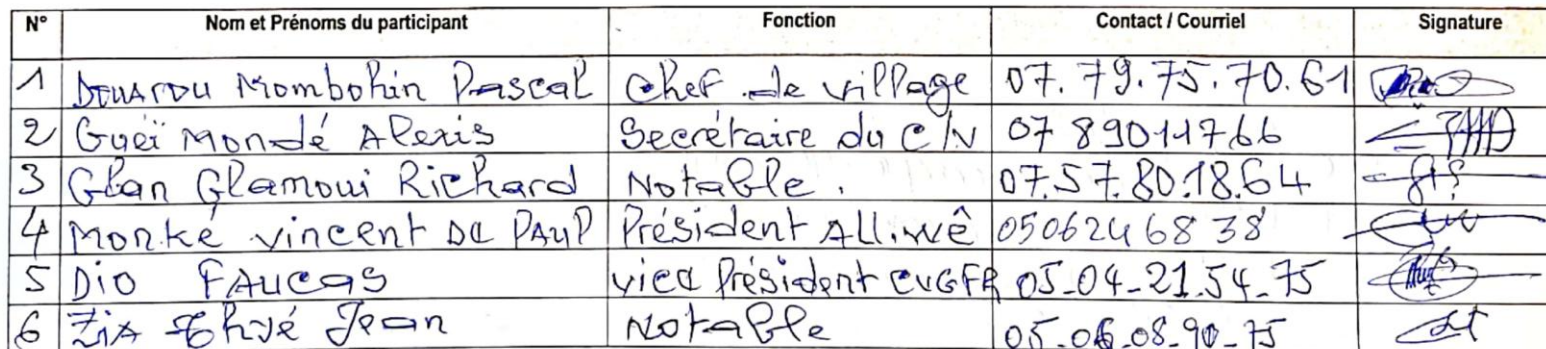 N° Nom et Prénoms du participant Fonction Contact / Courriel Signature
1 Mombohin Pascal Chef de village 07.79.75.70.61
2 Gueï Mondé Alexis Secrétaire du C/V 07 89011766
3 Glan Glamoui Richard Notable. 07.57.80.18.64
4 Monké vincent De Paul Président All.wê 0506246838
5 Dio Faucas vice Président CVGFR 05_04_21_54_75
6 Zia Jean Notable 05_06_08_90_75